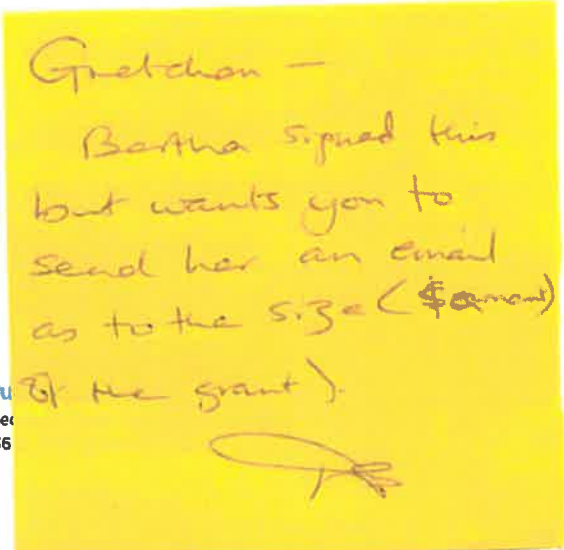 Gretchen —
Bertha signed this
but wants you to
send her an email
as to the size ($amount)
of the grant).